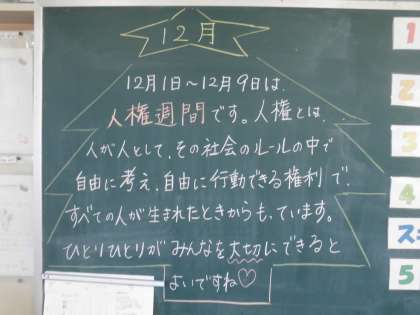 12月
12月1日～12月9日は、
人権週間です。人権とは、
人が人として、その社会のルールの中で
自由に考え、自由に行動できる権利で、
すべての人が生まれたときからもっています。
ひとりひとりがみんなを大切にできると
よいですね♡
1
2
3
4
5